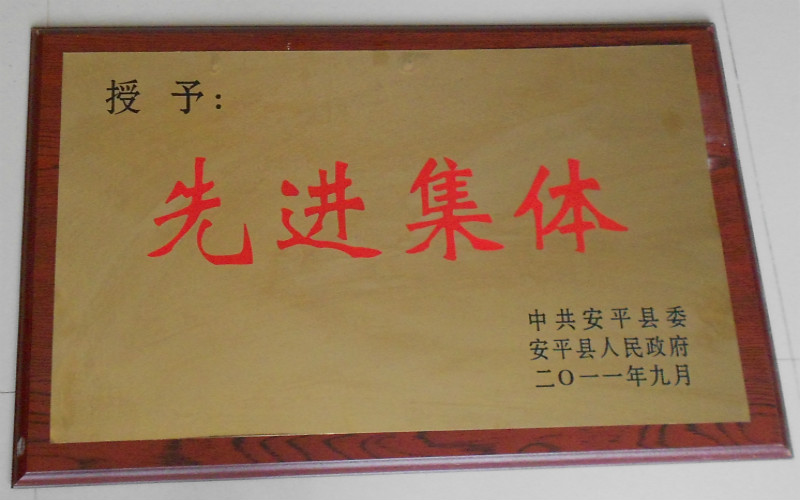 授予：
先进集体
中共安平县委
安平县人民政府
二〇一一年九月